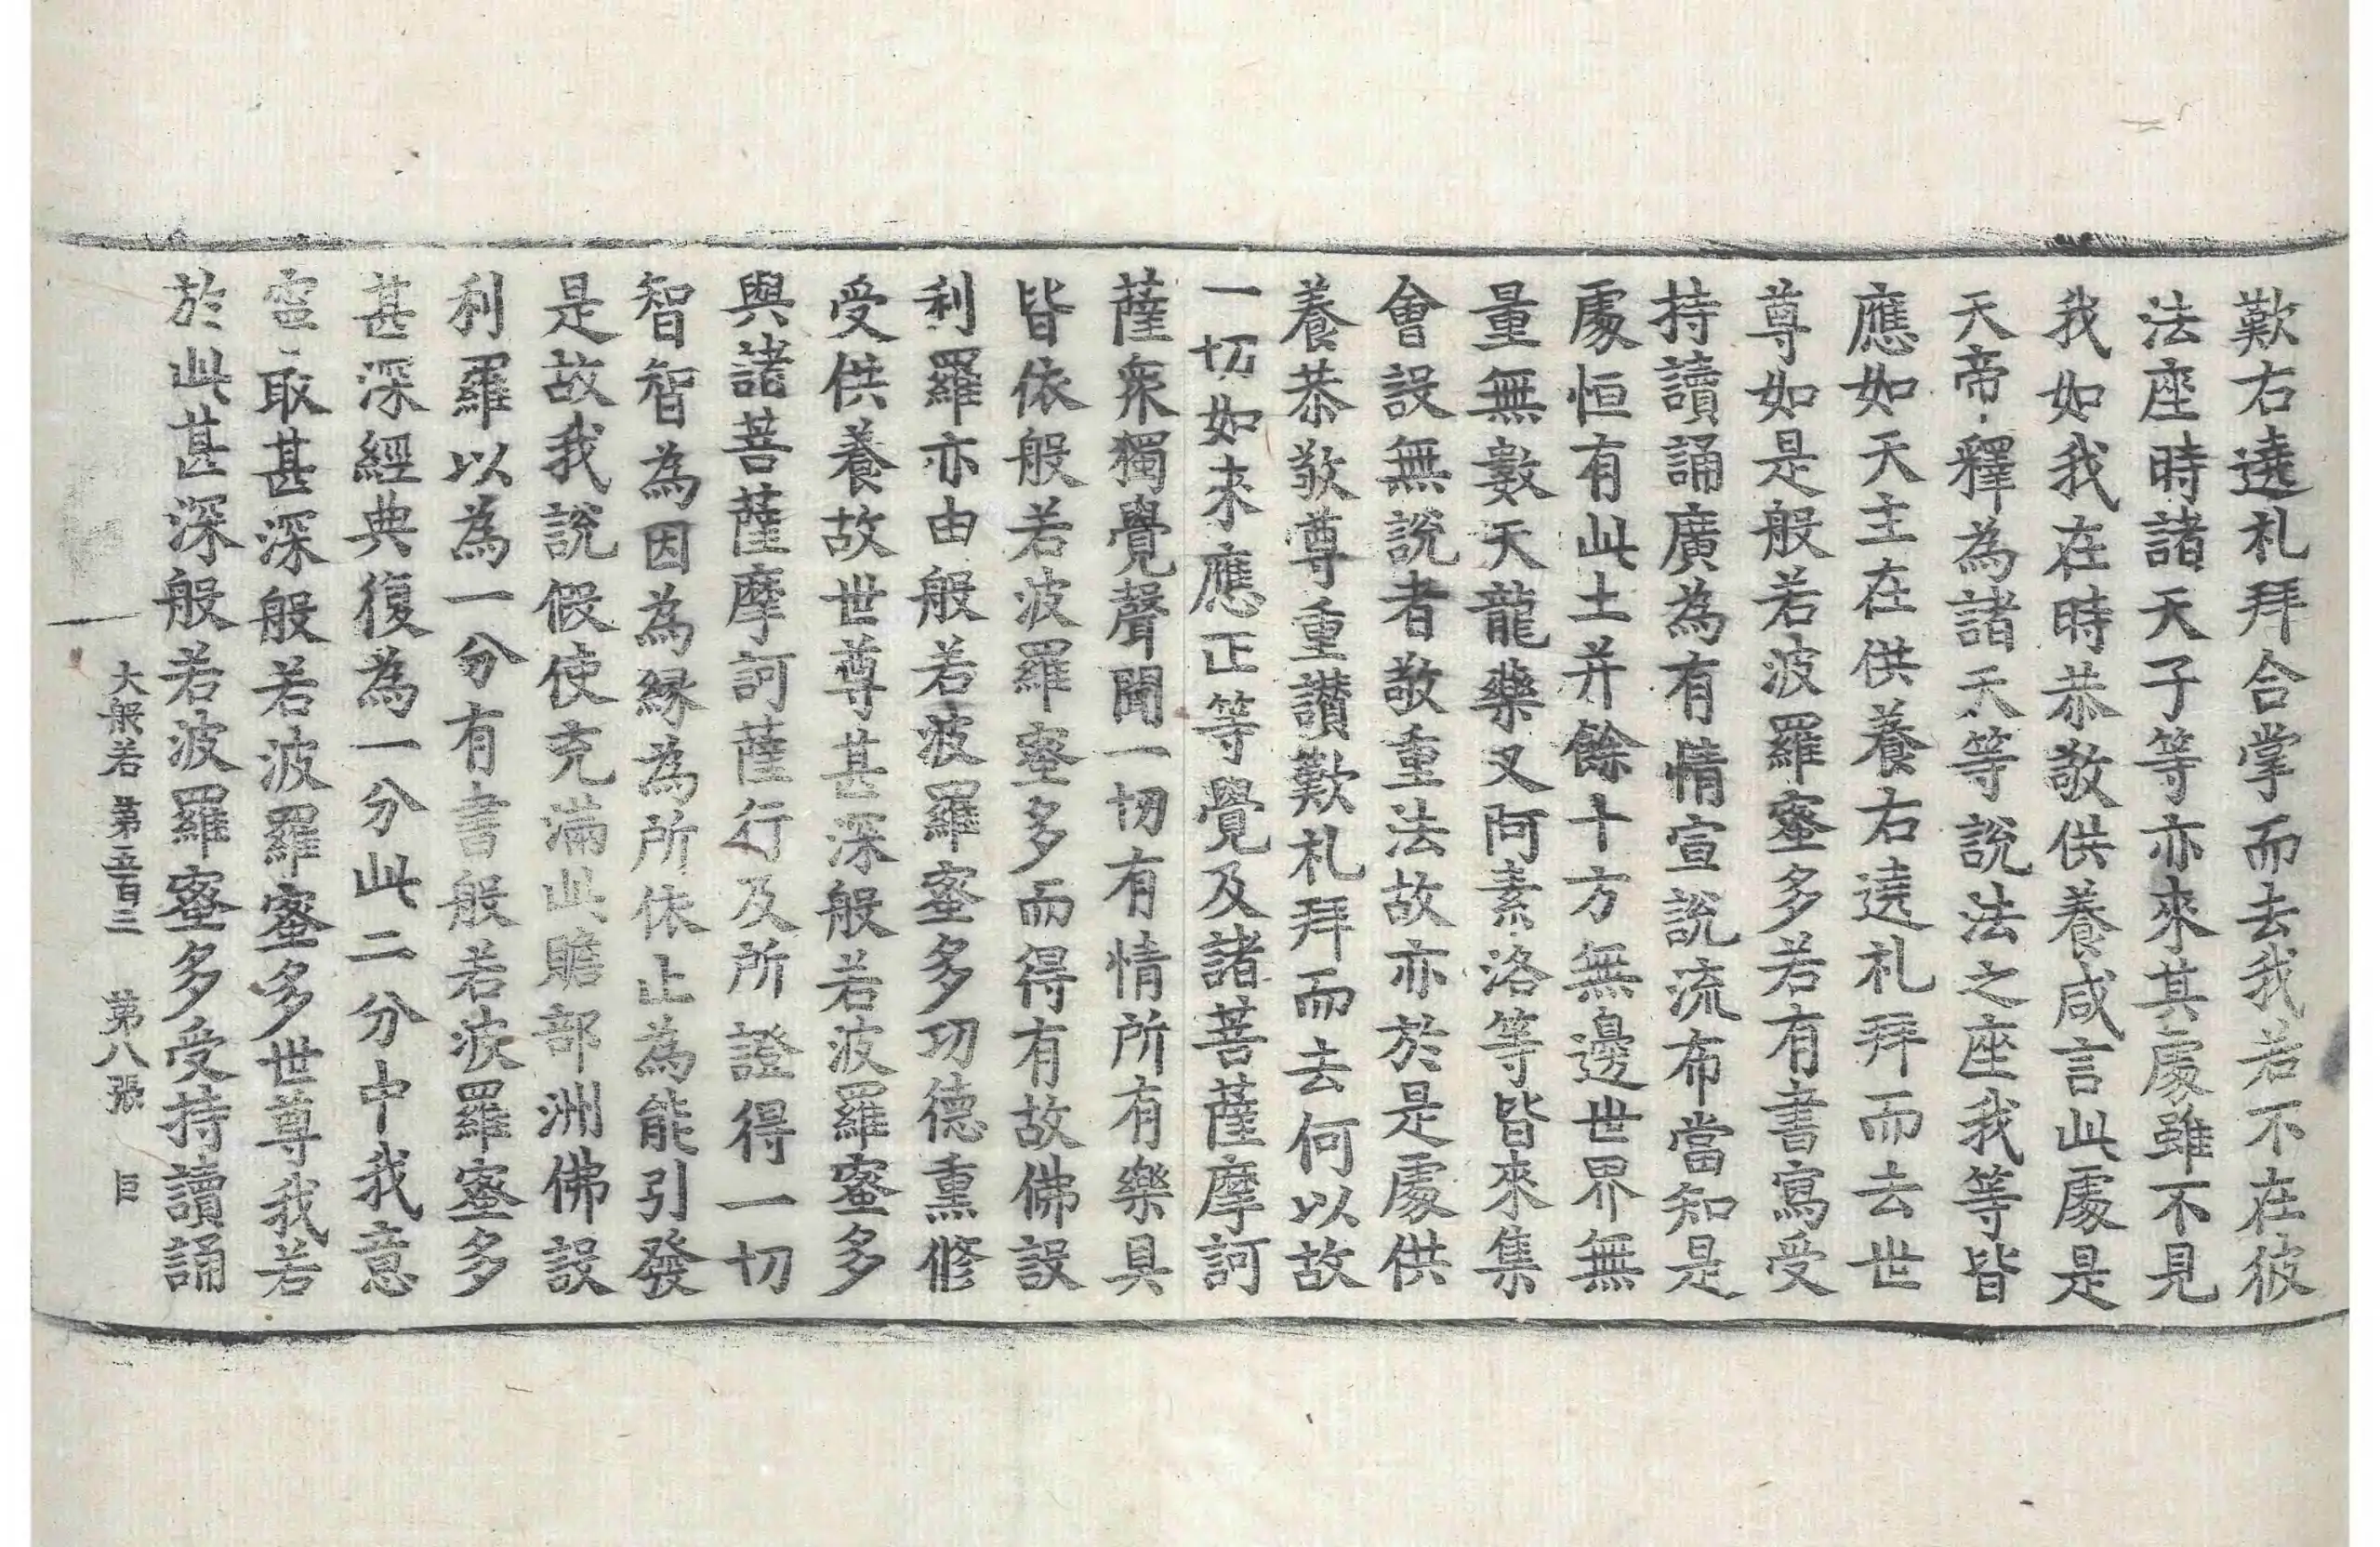 歎右遶札拜合掌而去我若不在彼
法座時諸天子等亦來其處雖不見
我如我在時恭敬供養咸言此處是
天帝釋為諸天等說法之座我等皆
應如天主在供養右遶札拜而去世
尊如是般若波羅蜜多若有書寫受
持讀誦廣為有情宣說流布當知是
處恒有此土并餘十方無邊世界無
量無數天龍藥叉阿素洛等皆來集
會設無說者敬重法故亦於是處供
養恭敬尊重讚歎札拜而去何以故
一切如來應正等覺及諸菩薩摩訶
薩衆獨覺聲聞一切有情所有樂具
皆依般若波羅蜜多而得有故佛設
利羅亦由般若波羅蜜多功德熏修
受供養故世尊甚深般若波羅蜜多
與諸菩薩摩訶薩行及所證得一切
智智為因為緣為所依止為能引發
是故我說假使充滿此贍部洲佛設
利羅以為一分有書般若波羅蜜多
甚深經典復為一分此二分中我意
寧取甚深般若波羅蜜多世尊我若
於此甚深般若波羅蜜多受持讀誦
大般若 第五百三 第八張